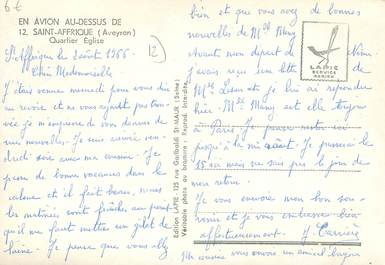 6€
EN AVION AU-DESSUS DE
12, SAINT-AFFRIQUE (Aveyron)
Quartier Église
12
St Affrique le 2 août 1966
Chère Mademoiselle
Je étais venue mercredi pour vous dire
au revoir et ne vous ayant pas trou-
vée je m'empresse de vous donner de
mes nouvelles. Je suis arrivée ven-
dredi soir avec ma cousine. Je
passe de bonnes vacances dans le
calme et il fait beau, mais
les matinées sont fraîches au point
qu'il me faut mettre un gilet de
laine. Je pense que vous allez
Edition LAPIE - 125 rue Garibaldi ST-MAUR (Seine)
Véritable photo au bromure - Reprod. interdite
LAPIE
SERVICE
AERIEN
bien et que vous avez de bonnes
nouvelles de Mlle
Avant mon départ de
avais reçu un lettre de
Mlle et je lui ai répondu
hier. Mlle est elle toujours
à Paris. Je pense rester ici
jusqu'à la mi août. Je passerai le
15 ici mais ne sais pas le jour de
mon retour.
Je vous envoie mon bon sou-
venir et je vous embrasse bien
affectueusement. J. Carrière
Ma cousine vous envoie un amical bonjour